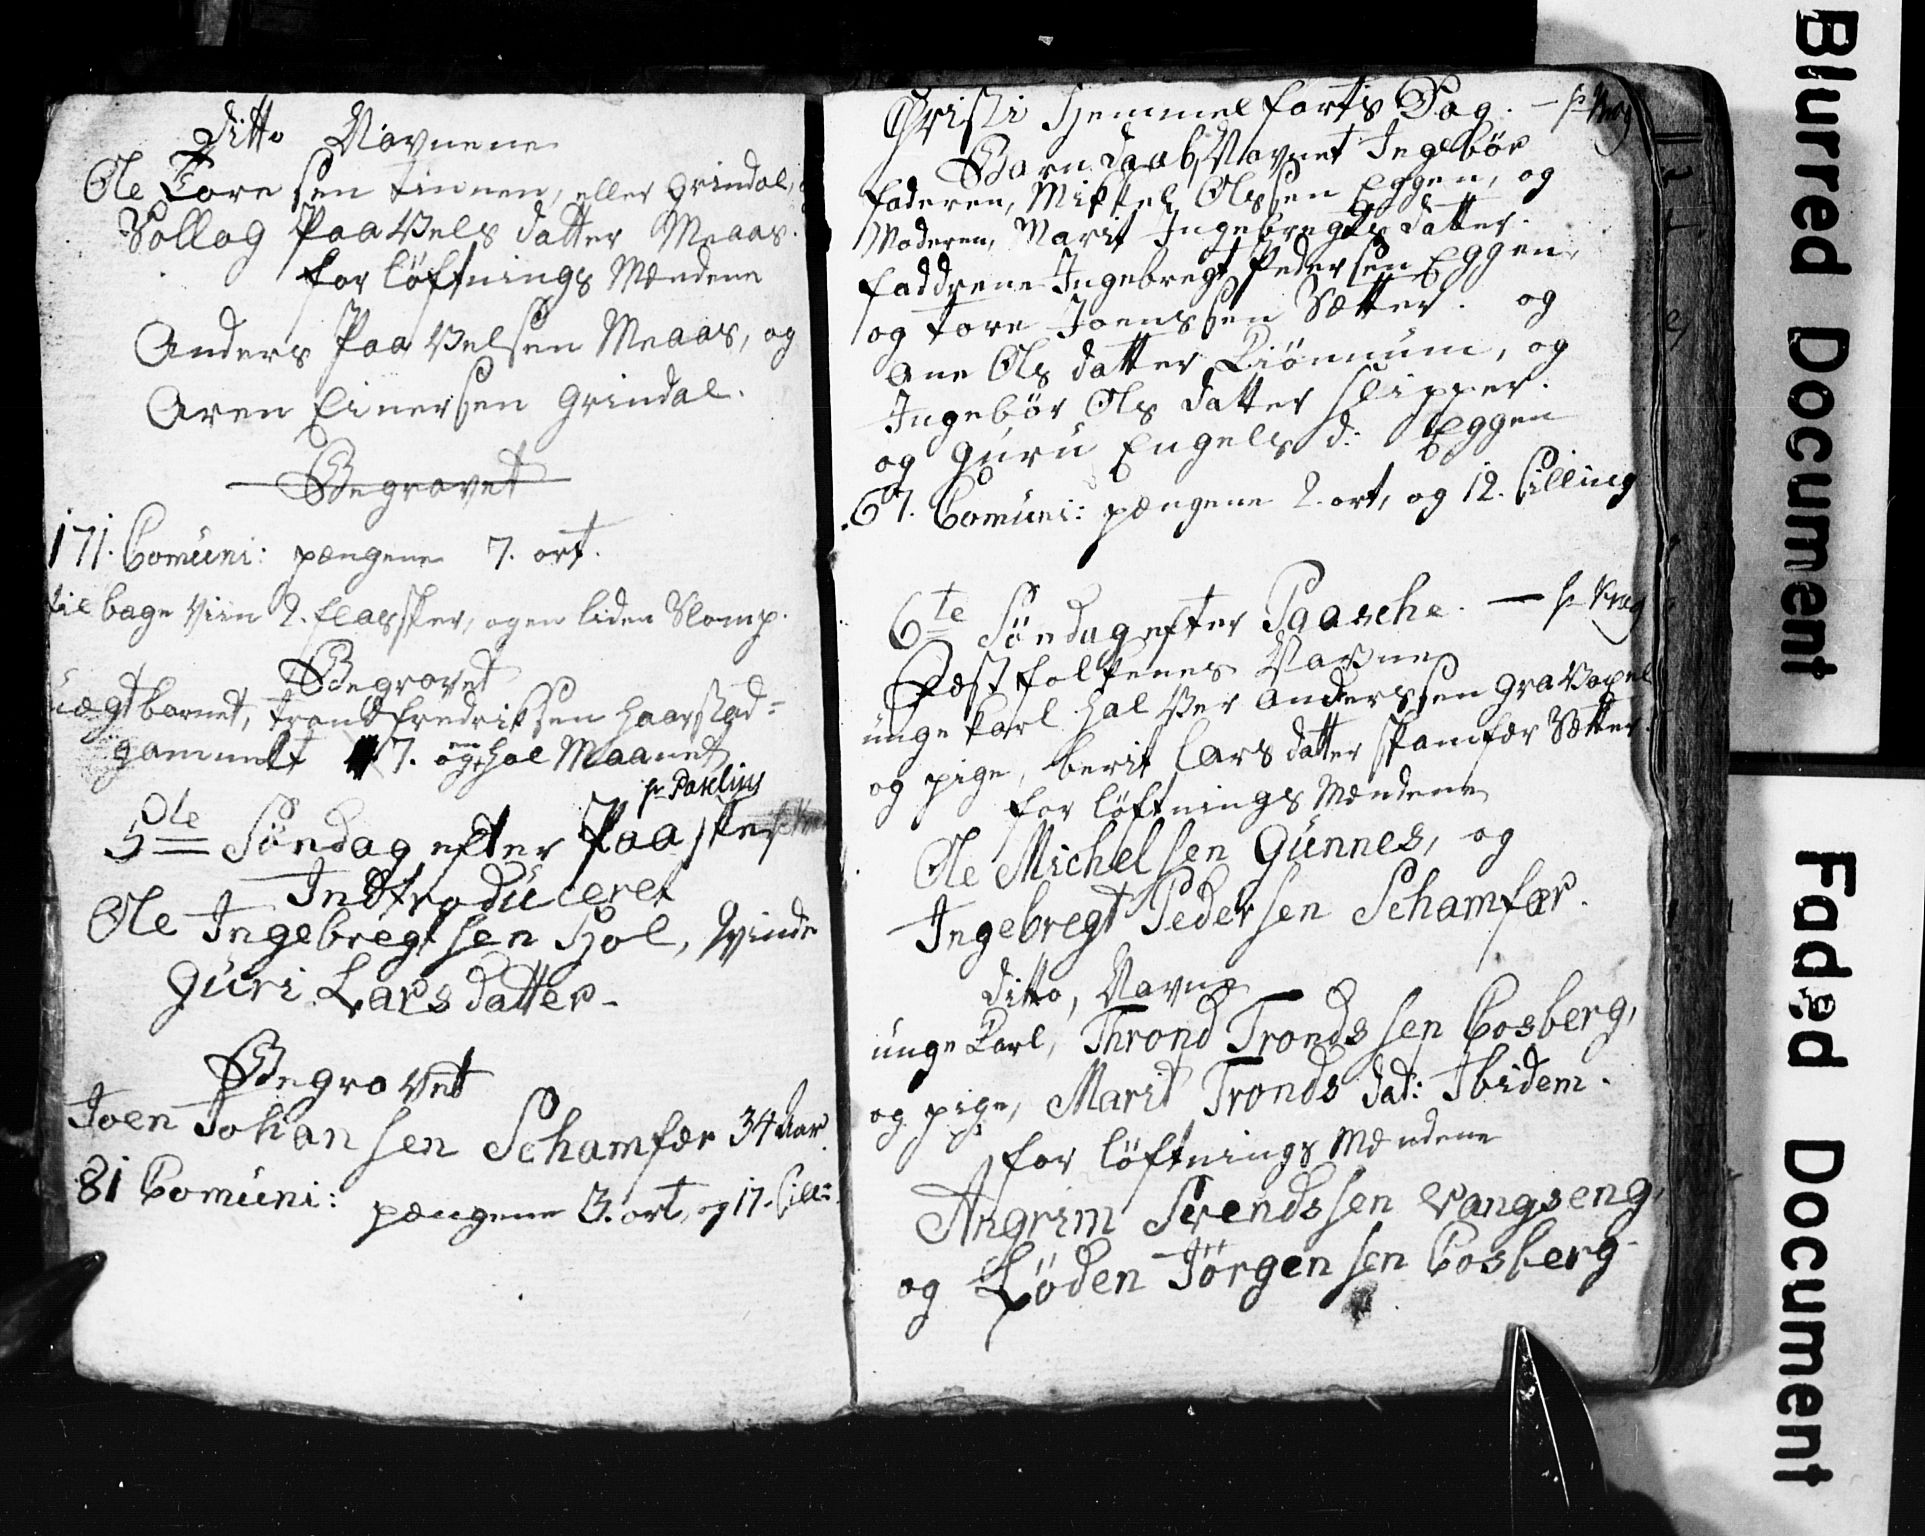 Ditto Navnene
Ole Tore sen tinnen, eller grindal,
Sollog Paavels datter Meaas.
for löftnings Mændene
Anders Paavelsen Meaas, og
Aren Einersen grindal.
Begravet
171. Comuni: pængene 7. ort.
til bage Viin 2. flassker, og en liden Slomp.
Begravet
uægt barnet, trond fredriksen haarstad-
gammelt 7. og en hal Maanet
hr Parelius
5te Söndag efter Paaske
Indtroduceret
Ole Ingebregtsen Hol, Qvinde
Guri Larsdatter-
Begravet
Joen Johansen Schamfær 34 Aar
81 Comuni: pængene 3. ort, og 17. sill:
Christi Hemmelfarts Dag. - hr Krog
Barn daab, Navnet Ingebör
faderen, Mikkel Olssen Eggen, og
Moderen, Marit Ingebregts datter.
faddrene Ingebregt Pedersen Eggen,
og tore Joenssen Sætter. og
Ane Ols datter Liönnum, og
Ingebör Ols datter slipper.
og guru Engels d: Eggen
67. Comuni: pængene 2. ort, og 12. silling
6te Söndag efter Paasche. - hr Krog
Fæstfolkenes Navne
unge karl halver Anderssen gravapel
og pige, berit Larsdatter skamfær Sætter.
for löftnings Mændene
Ole Michelsen Günnes, og
Ingebregt Pedersen Schamfær.
ditto, Navne
unge karl, Thrond Tronds sen Bosberg,
og pige, Marit Tronds dat: Ibidem.
for löftnings Mændene
Angrim Svendssen vangseng,
og Löden Jörgensen Bosberg
Blurred Document
Faded Document